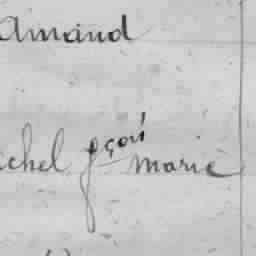 Amand
chel fçois marie